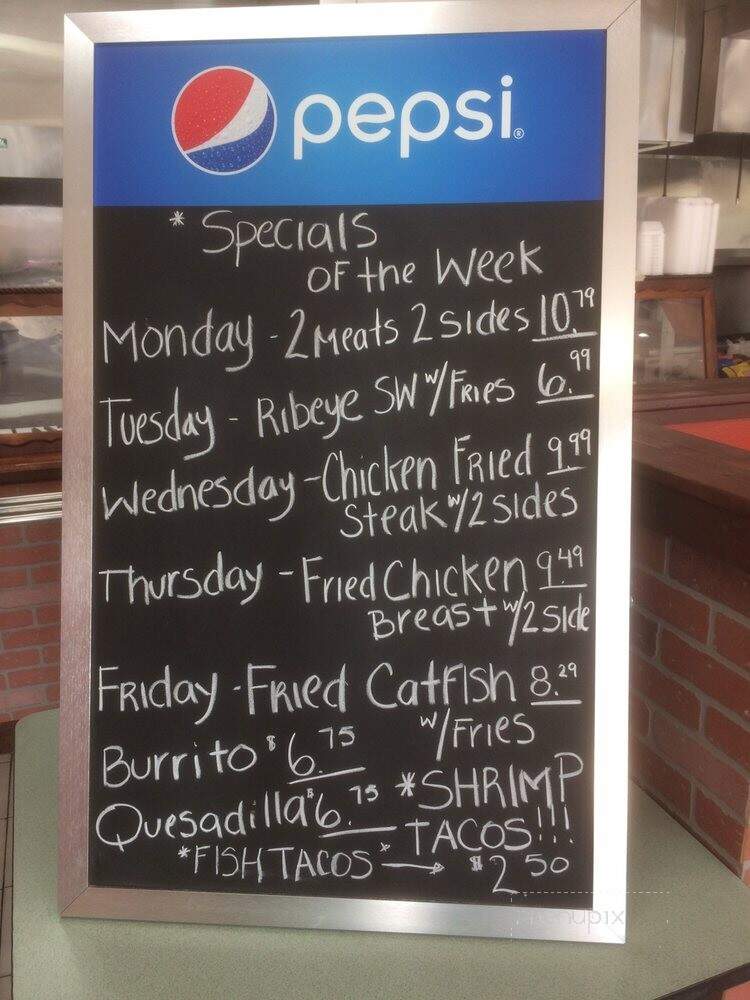 pepsi®
* Specials
of the Week
Monday - 2 Meats 2 sides 10.79
Tuesday - Ribeye SW w/Fries 6.99
Wednesday - Chicken Fried 9.99
Steak w/2 sides
Thursday - Fried Chicken 9.49
Breast w/2 side
Friday - Fried Catfish 8.29
w/Fries
Burrito $6.75
Quesadilla $6.75 *SHRIMP
TACOS!!!
*FISH TACOS* → $2.50